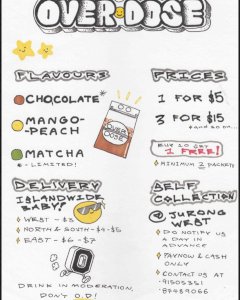 OVERDOSE
FLAVOURS
CHOCOLATE*
MANGO-
PEACH
MATCHA
* - LIMITED!
PRICES
1 FOR $5
3 FOR $15
BUY 10 GET
1 FREE!
MINIMUM 2 PACKETS
DELIVERY
ISLANDWIDE
BABY!
WEST - $3
NORTH & SOUTH - $4-$5
EAST - $6-$7
DRINK IN MODERATION,
DON'T O.D!
SELF
COLLECTION
@ JURONG
WEST
DO NOTIFY US
A DAY IN
ADVANCE
PAYNOW & CASH
ONLY
CONTACT US AT